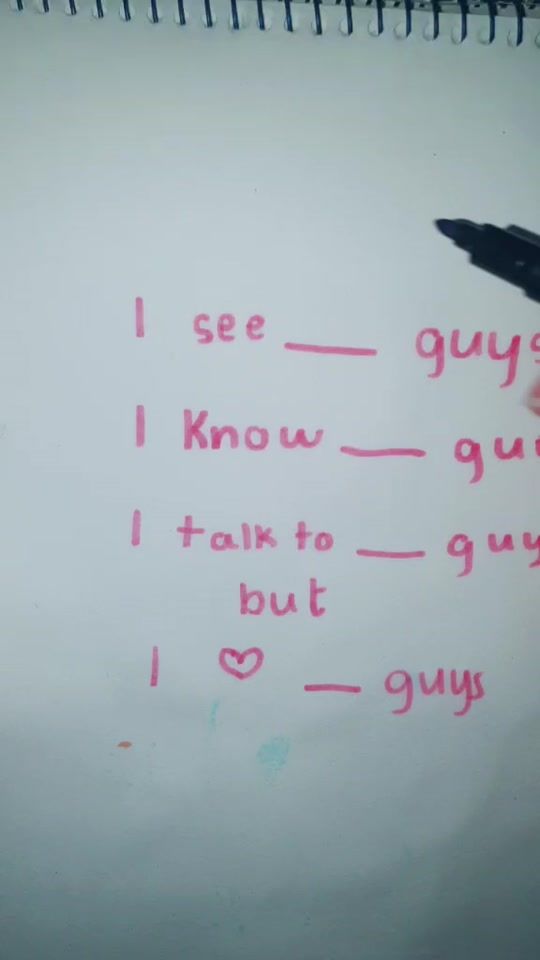 I see __ guys
I Know __ gu
I talk to __ guy
but
I ♡ __ guys